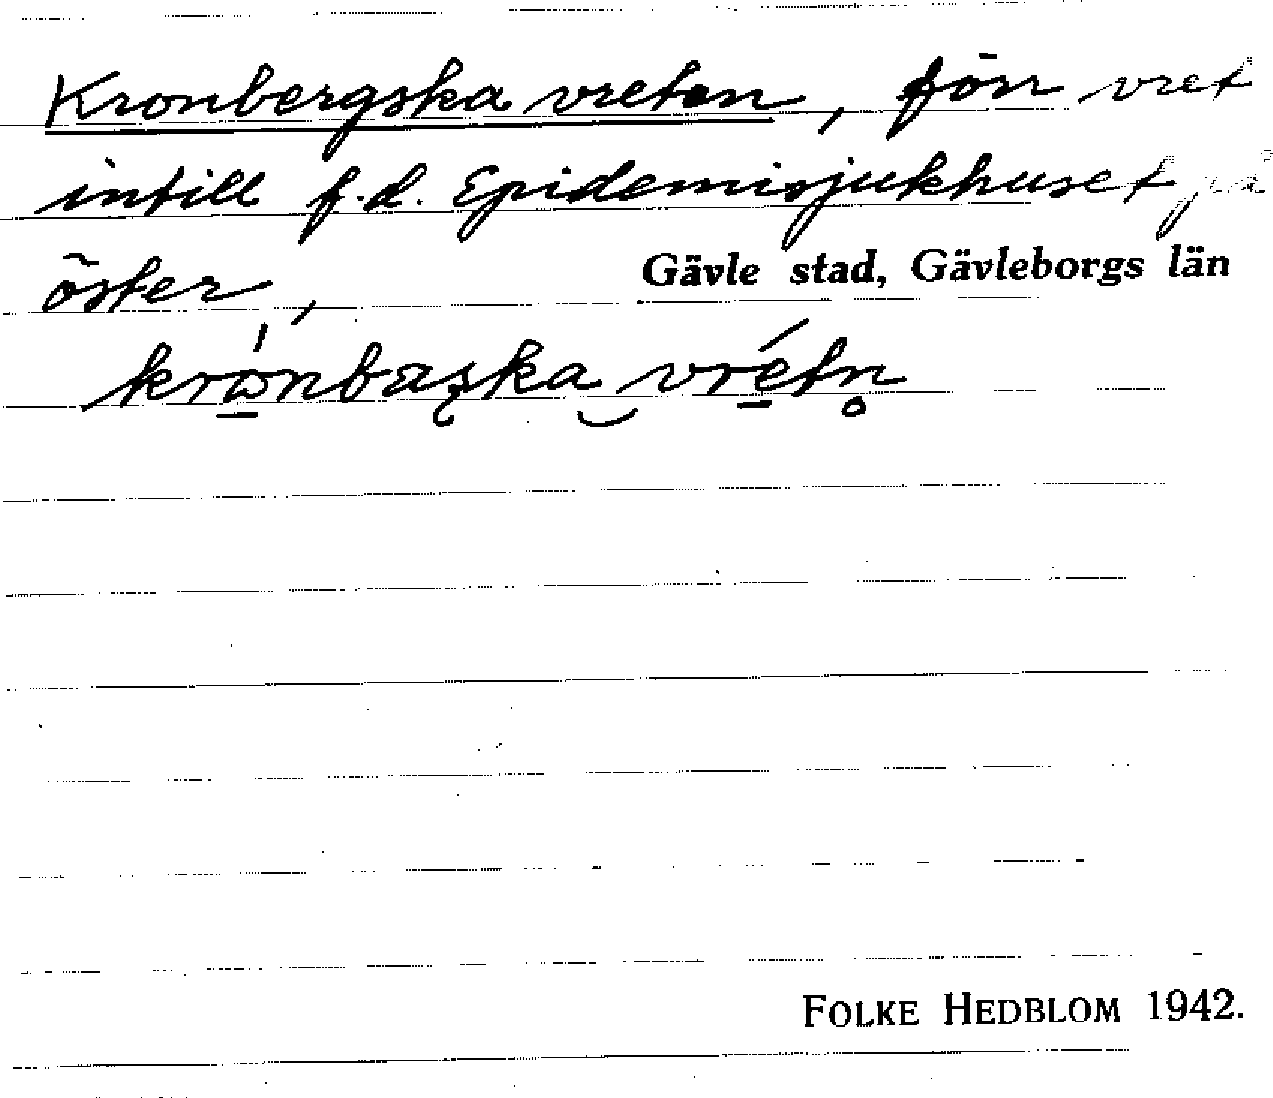 Kronbergska vreten, förr vret
intill f.d. Epidemisjukhuset på
öster,
Gävle stad, Gävleborgs län
krɷ̀nbæʂka‿vrétn̥
FOLKE HEDBLOM 1942.